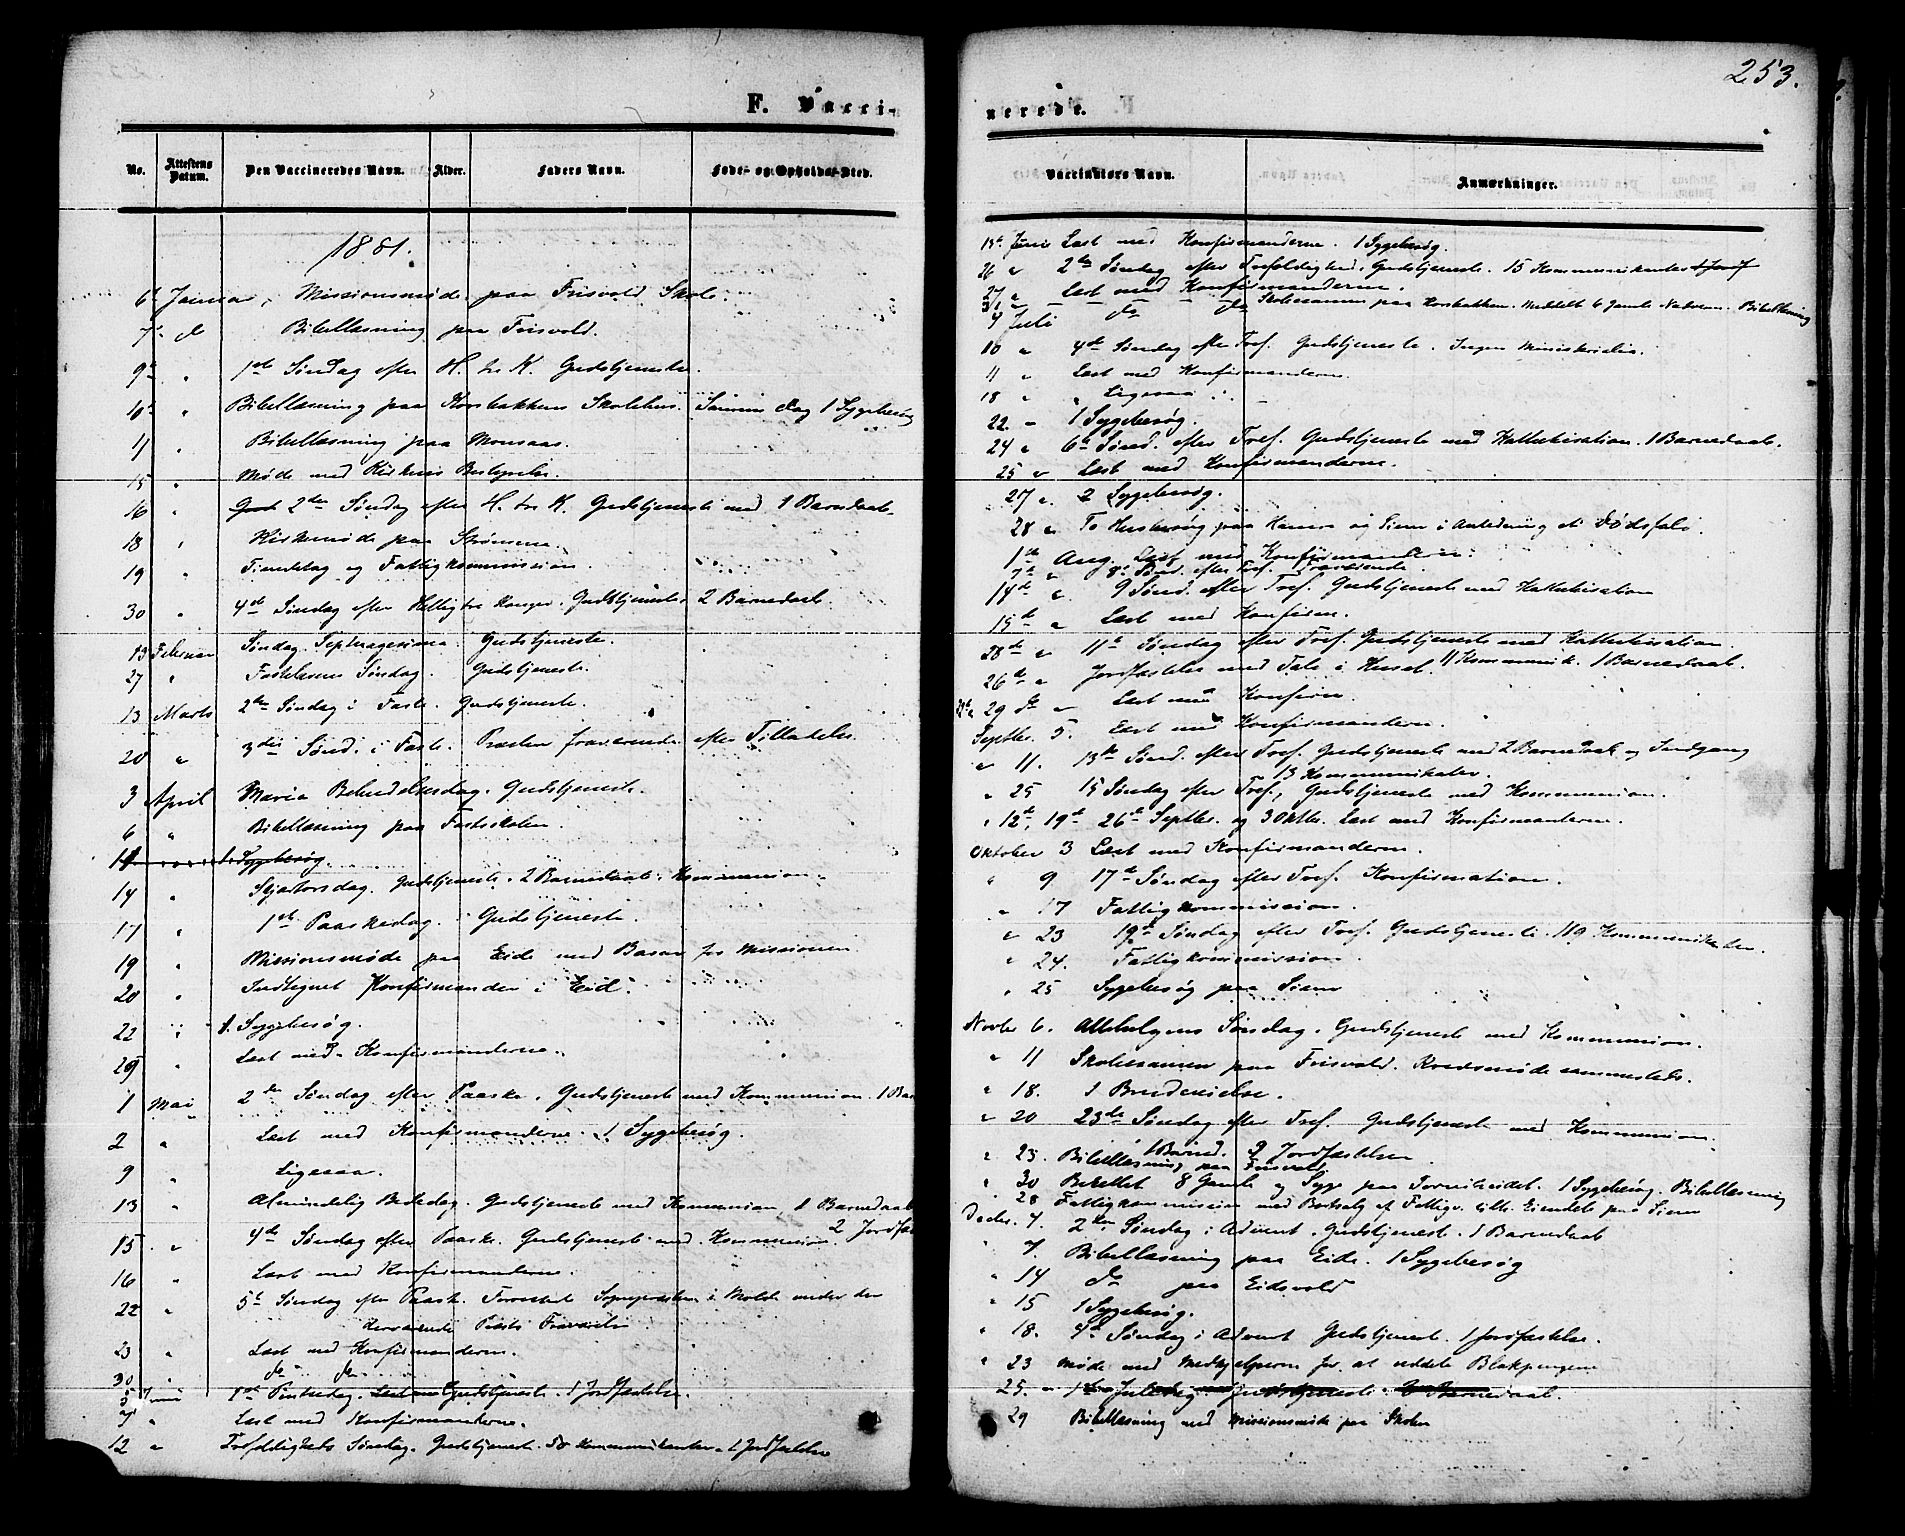 F. Vacci-
No.
Attestens Datum.
Den Vaccineredes Navn.
Alder.
Faders Navn.
Føde- og Opholds-Sted.
1881.
6t Januar, Missionsmøde paa Frisvold Skole.
7t d Bibellæsning paa Frisvold.
9t " 1ste Søndag efter H. tre K. Gudstjeneste.
10t " Bibellæsning paa Horsbakkens Skolehus. Samme Dag 1 Sygebesøg
11 " Bibellæsning paa Monsaas.
15 " Møde med Kirkens Bestyrelse.
16 " 2den Søndag efter H. tre K. Gudstjeneste med 1 Barnedaab.
18 " Kirkemøde paa Strømme.
19 " og Fattigkommission.
30 " 4de Søndag efter Hellig tre Konger. Gudstjeneste 2 Barnedaab.
13 Februar Søndag Septuagesima. Gudstjeneste.
27 " Fastelavns Søndag. Gudstjeneste.
13 Marts 2den Søndag i Faste. Gudstjeneste.
20 " 3die Sønd. i Faste. Præsten fraværende efter Tilladelse.
3 April Maria Bebudelsesdag. Gudstjeneste.
6 " Bibellæsning paa Fastskolen.
11 " 1. Sygebesøg.
14 " Skjærtorsdag. Gudstjeneste. 2 Barnedaab. Kommunion.
17 " 1ste Paaskedag. Gudstjeneste.
19 " Missionsmøde paa Eide med Basar for Missionen
20 " Indtegnet Konfirmander i Eid.
22 " 1. Sygebesøg.
25 " Læst med Konfirmanderne.
1 Mai 2den Søndag efter Paaske. Gudstjeneste med Kommunion. 1 Bar
2 " Læst med Konfirmanderne. 1 Sygebesøg.
9 " Ligesaa.
13 " Almindelig Bededag. Gudstjeneste med Kommunion, 1 Barnedaab
2 Jordfæ
15 " 4de Søndag efter Paaske. Gudstjeneste med Kommunion.
16 " Læst med Konfirmanderne.
22 " 5te Søndag efter Paaske. Forrettet Sognepræsten i Molde under den
herværende Præsts Fravær
23 " Læst med Konfirmanderne.
30 " do do
5 Juni 1ste Pintsedag. Gudstjeneste. 1 Jordfæstelse.
7 " Læst med Konfirmanderne.
12 " Trefoldigheds Søndag. Gudstjeneste. 50 Kommunikanter. 1 Jordfæstelse
253.
nerede.
Vaccinators Navn.
Anmærkninger.
13t Juni Læst med Konfirmanderne. 1 Sygebesøg.
26 " 2den Søndag efter Trefoldighed. Gudstjeneste. 15 Kommunikanter
27 " Læst med Konfirmanderne.
Skoleexamen paa Horsbakken. Meddelt 6 Gamle Nadveren. Bibellæsning
4 Juli do do
10 " 4de Søndag efter Tref. Gudstjeneste. Ingen Ministerialia.
11 " Læst med Konfirmanderne.
18 " " Ligesaa
22 " 1 Sygebesøg.
24 " 6te Sønd. efter Tref. Gudstjeneste med Katkekisation. 1 Barnedaab.
25 " Læst med Konfirmanderne.
27 " 2 Sygebesøg.
28 " To Husbesøg paa Hamre og Siem i Anledning af Dødsfald.
1ste Aug. Læst med Konfirmanderne.
7de " 8de Sønd. efter Tref. Fraværende.
14de " 9 Sønd. efter Tref. Gudstjeneste med Katekisation
15de " Læst med Konfirm.
28de " 11te Søndag efter Tref. Gudstjeneste med Katekisation.
11 Kommunik. 1 Barnedaab.
26de " Jordfæstelse med Tale i Huset.
29 de " Læst med Konfirm.
Septbr. 5. Læst med Konfirmanderne.
" 11. 13de Sønd. efter Tref. Gudstjeneste med 2 Barnedaab og Indgang
13 Kommunikanter.
" 25 15 Søndag efter Tref., Gudstjeneste med Kommunion.
" 12te, 19de 26de Septbr. og 3 Oktbr. Læst med Konfirmanterne.
Oktober 3 Læst med Konfirmanderne.
" 9 17de Søndag efter Tref. Konfirmation.
" 17 Fattigkommission.
" 23 19de Søndag efter Tref. Gudstjeneste. 119 Kommunikanter.
" 24. Fattigkommission.
" 25 Sygebesøg paa Siem
Novbr 6. Allehelgens Søndag. Gudstjeneste med Kommunion.
" 11 Skoleexamen paa Frisvold. Kredsmøde sammesteds.
" 18. 1 Brudevielse.
" 20 23de Søndag efter Tref. Gudstjeneste med Kommunion.
1 Barned. 2 Jordfæstelser
" 23. Bibellæsning paa Frisvold
" 30 Berettet 8 Gamle og Syge paa 1 Sygebesøg. Bibellæsning
" 28 Fattigkommission med Bortsalg af Fattige tilh. Eiendele paa Siem
Decbr. 4. 2den Søndag i Advent. Gudstjeneste. 1 Barnedaab
" 7. Bibellæsning paa Eide. 1 Sygebesøg
" 14 do paa Eidsvold
" 15 1 Sygebesøg.
" 18. 4de Søndag i Advent Gudstjeneste. 1 Jordfæstelse.
" 23 Møde med Medhjælperne for at uddele Blokpengene
25. " 1ste Juledag Gudstjeneste. Barnedaab.
29 Bibellæsning med Missionsmøde paa Skolen